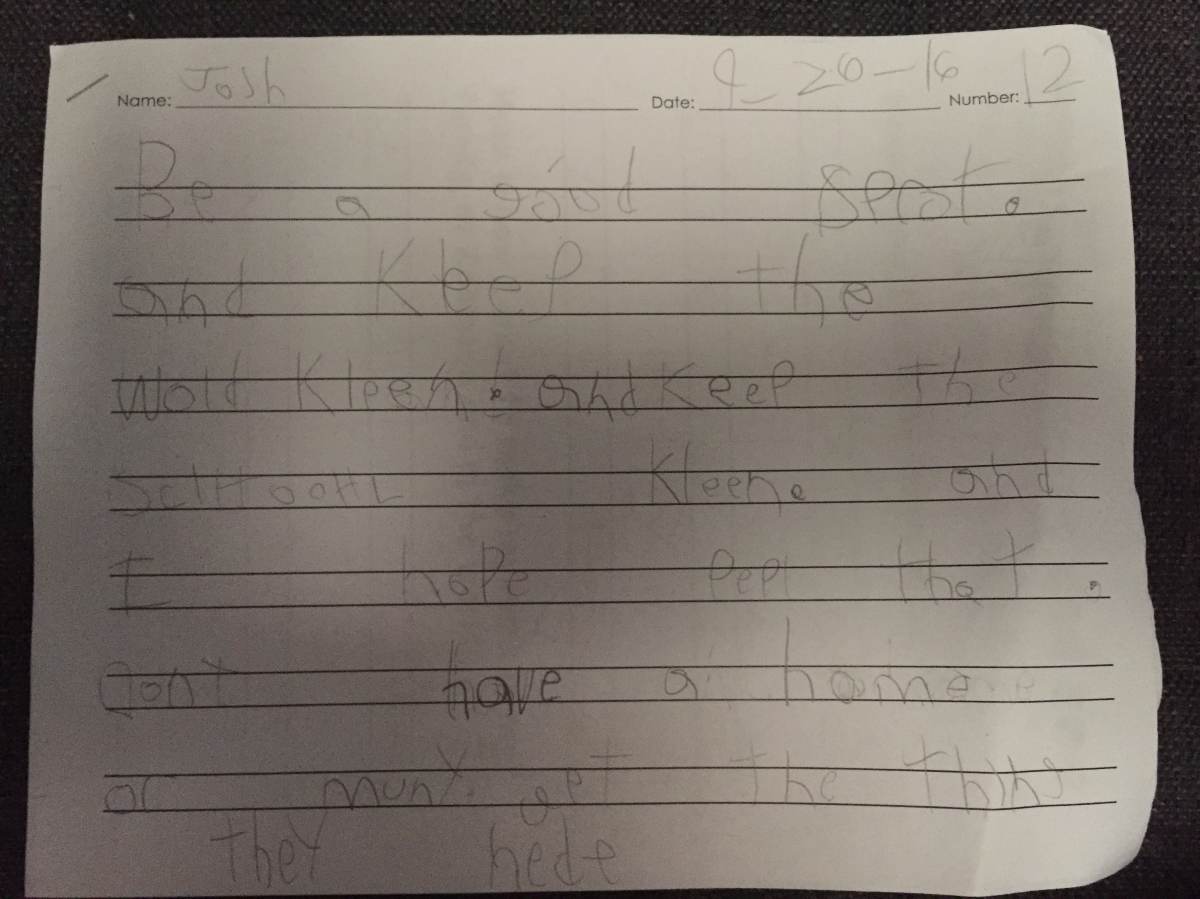 Name: Josh Date: 9-20-16 Number: 12
Be a good sprot.
and Keep the
Wold Kleen. and Keep the
SclHooHL Kleen. and
I hope pepl that.
dont have a home
or muny. get the thing
they hede